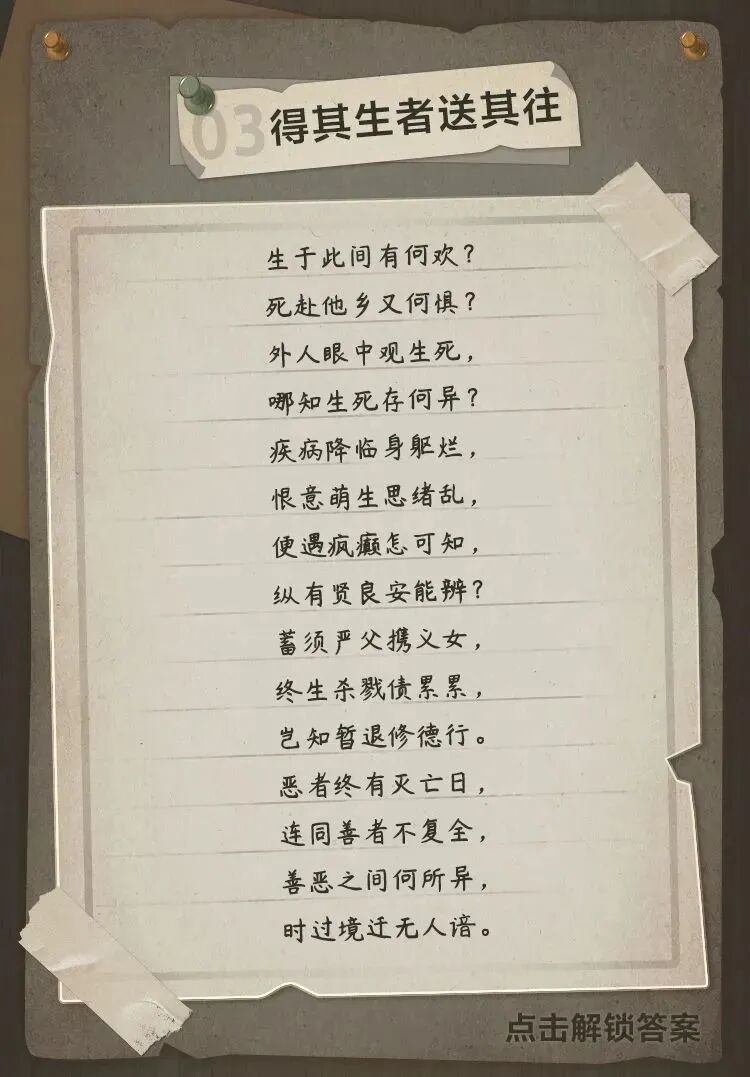 03得其生者送其往
生于此间有何欢？
死赴他乡又何惧？
外人眼中观生死，
哪知生死存何异？
疾病降临身躯烂，
恨意萌生思绪乱，
便遇疯癫怎可知，
纵有贤良安能辨？
蓄须严父携义女，
终生杀戮债累累，
岂知暂退修德行。
恶者终有灭亡日，
连同善者不复全，
善恶之间何所异，
时过境迁无人谙。
点击解锁答案